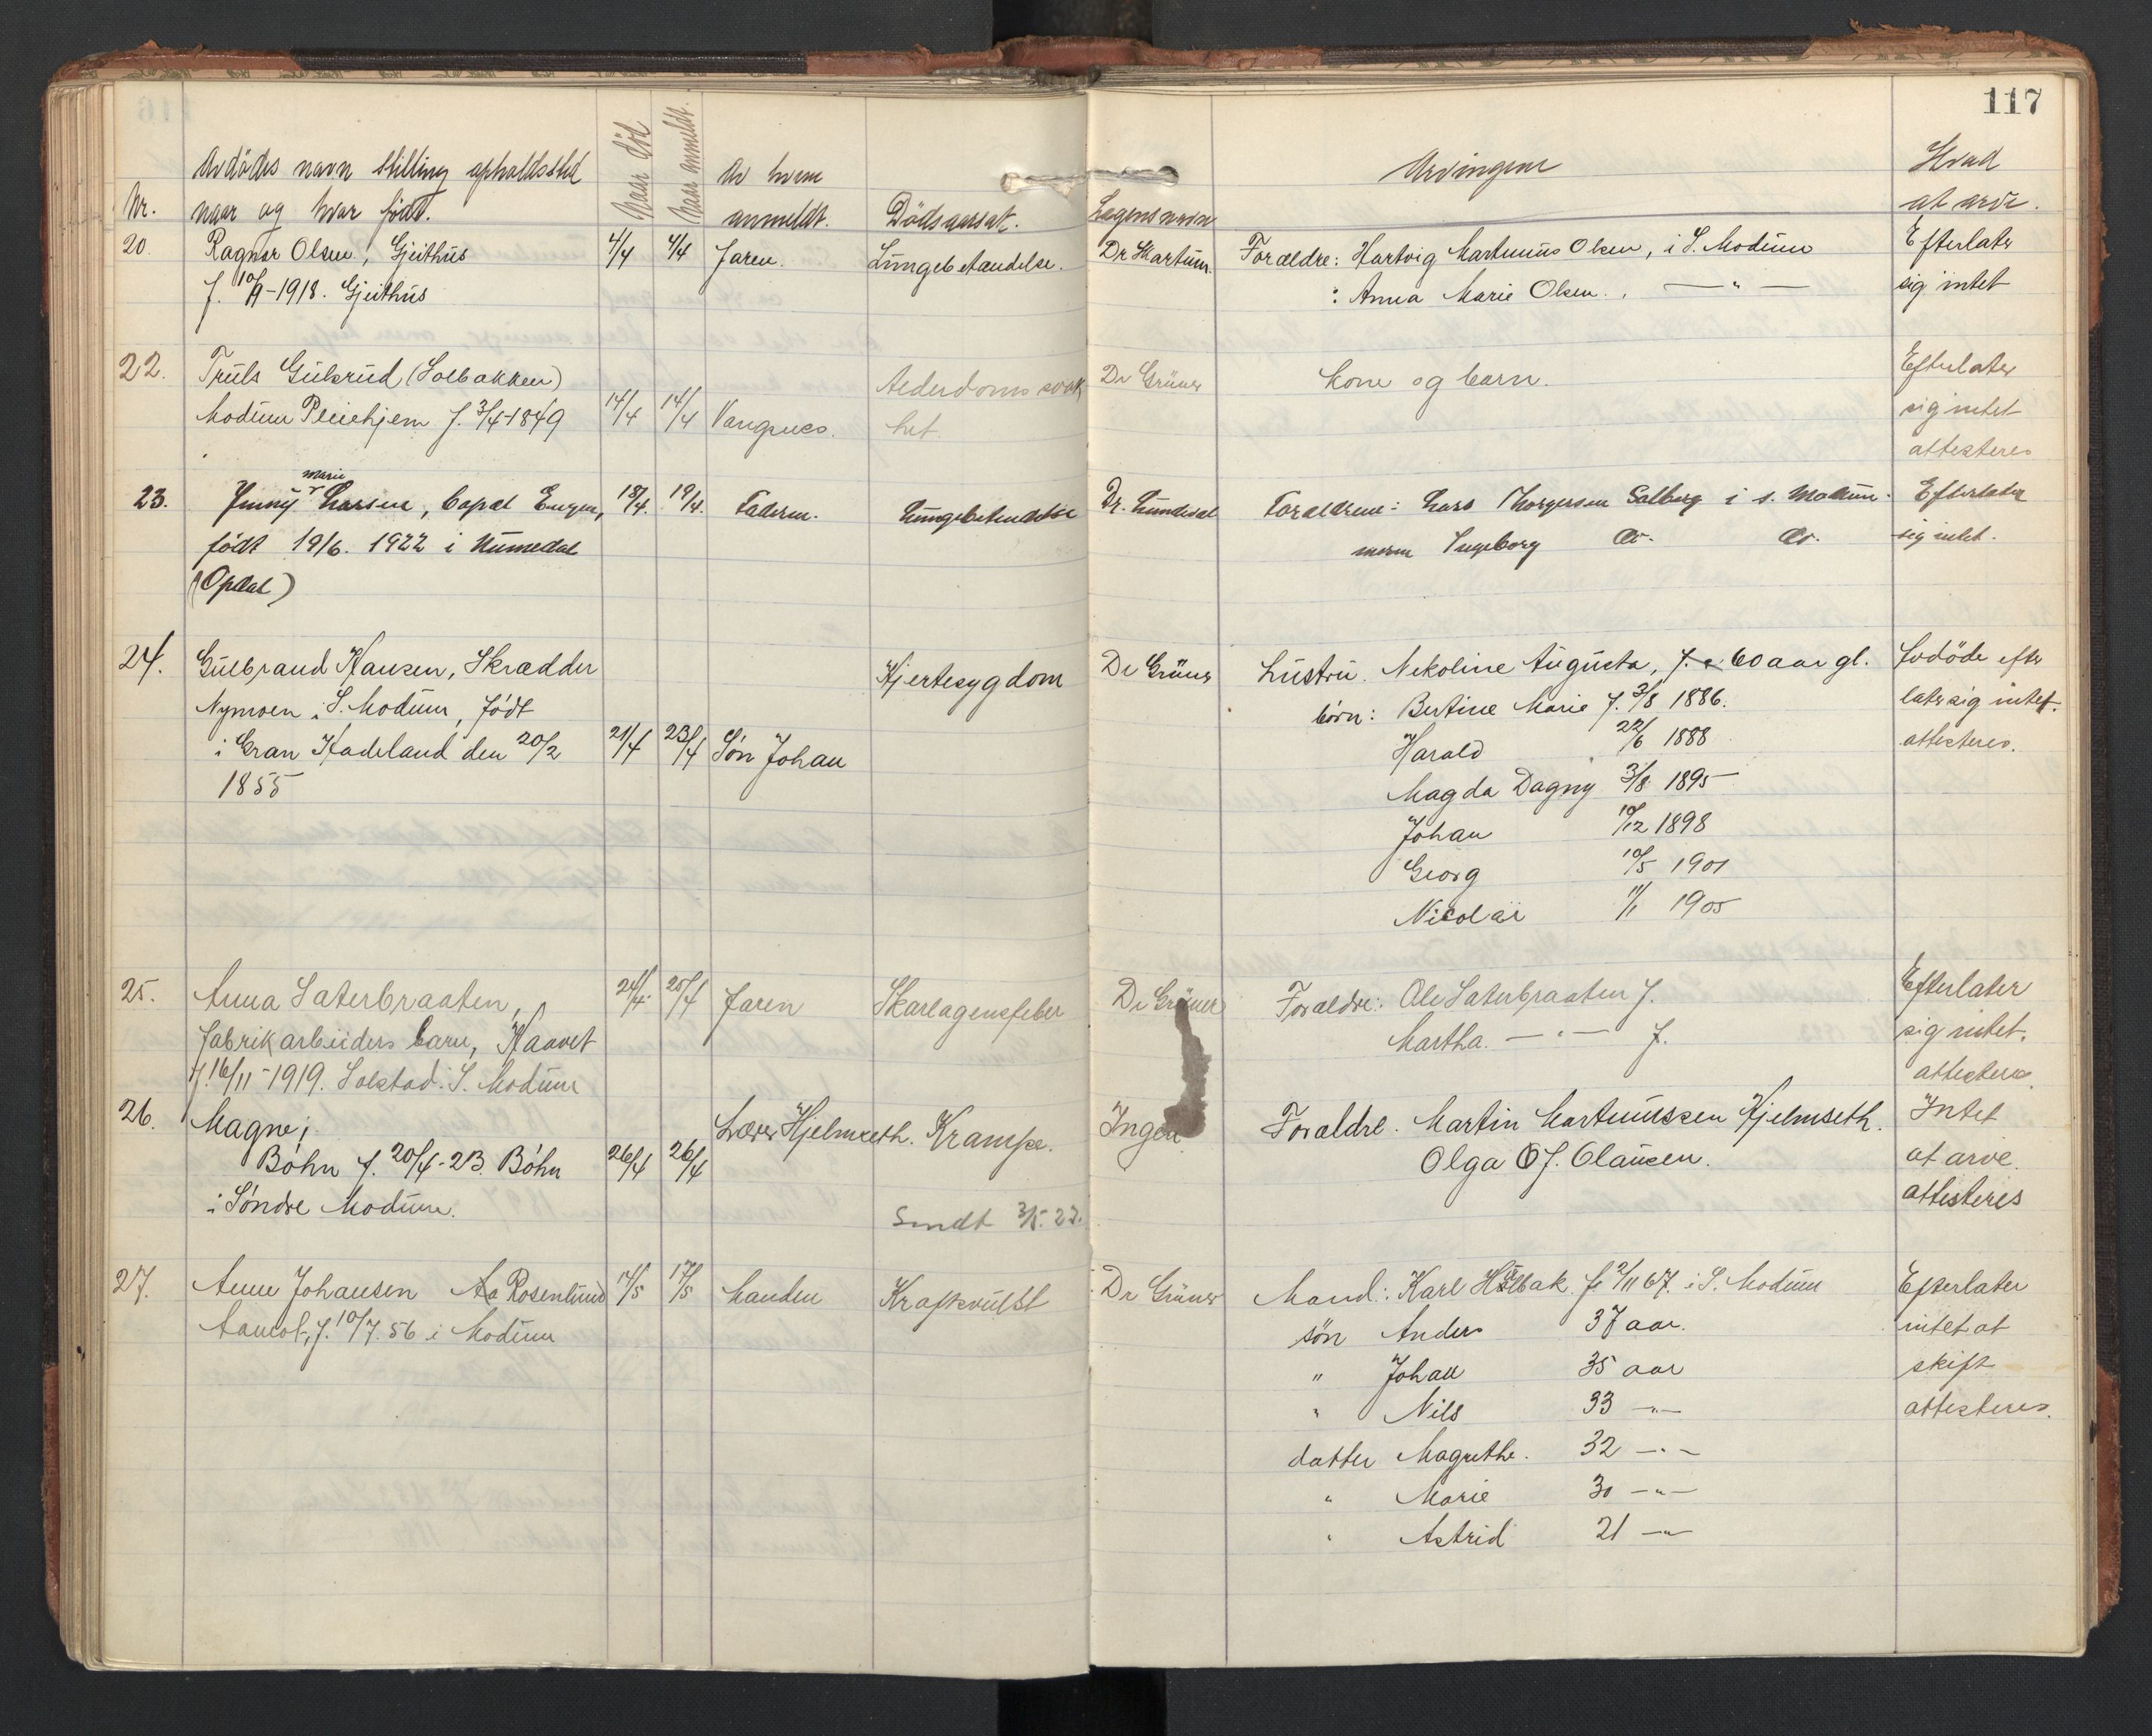 117
Nr.
Avdödes navn stilling opholdssted
naar og hvor födt.
Naar död
Naar anmeldt.
Av hvem
anmeldt.
Dödsaarsak.
Lægens navn
Arvingene
Hvad
at arve.
20. Ragnar Olsen, Gjeithus 4/4 4/4 Faren. Lungebetændelse. Dr Foreldre: Hartvig Martinius Olsen, i S. Modum Efterlater
f. 10/9-1918. Gjeithus : Anna Marie Olsen. , — " — sig intet
22. Truls Gulsrud (Solbakken) Alderdomssvak Dr Grüner Kone og barn. Efterlater
Modum Pleiehjem f. 3/4-1849 14/4 14/4 Vangsnes. het. sig intet
attesteres
marie
23. Jenny Larsen, Capt Eugen, 18/4. 19/4. Faderen. Lungebetændelse Dr. Lundedal Forældrene: Lars Thorgersen Solberg i s. Modum. Efterlater
født 19/6. 1922 i Numedal moren Ingeborg do. do. sig intet.
(Opdal)
24. Gulbrand Hansen, Skrædder Hjertesygdom Dr Grüner Hustru. Nekoline Augusta, f. 60 aar gl. Avdöde efter
Nymoen i S. Modum, født børn: Bertine Marie f. 3/8 1886. later sig intet.
i Gran Hadeland den 20/2 21/4 23/4 Søn Johan Harald 22/6 1888 attesteres.
1855 Magda Dagny 3/8 1895
Johan 10/12 1898
Georg 10/5 1901
Nicolai 11/1 1905
25. Anna Saterbraaten, 24/4. 25/4 Faren Skarlagensfeber Dr Grüner Foreldre: Ole Saterbraaten f. Efterlater
fabrikarbeiders barn, Kaavet Martha. — " — f. sig intet.
f. 16/11-1919. Solstad. S. Modum attesteres.
26. Magne; Lærer Hjelmseth. Krampe. Ingen Foreldre. Martin Martinussen Hjelmseth. Intet
Böhn f. 20/4-23. Böhn 26/4 26/4 Olga O f. Clausen. at arve.
i Søndre Modum. attesteres
Sendt 3/5. 23.
27. Anne Johansen Aa Rosenlund 14/5 17/5 Manden Kraftsvulst Dr Grüner Mand: Karl Holbak f. 2/11 67. i S. Modum Efterlater
Aamot, f. 10/7. 56 i Modum søn Anders 37 aar. intet at
" Johan 35 aar skifte
" Nils 33 — " — attesteres.
datter Magrethe. 32 — " —
" Marie 30 — " —
" Astrid 21 — " —